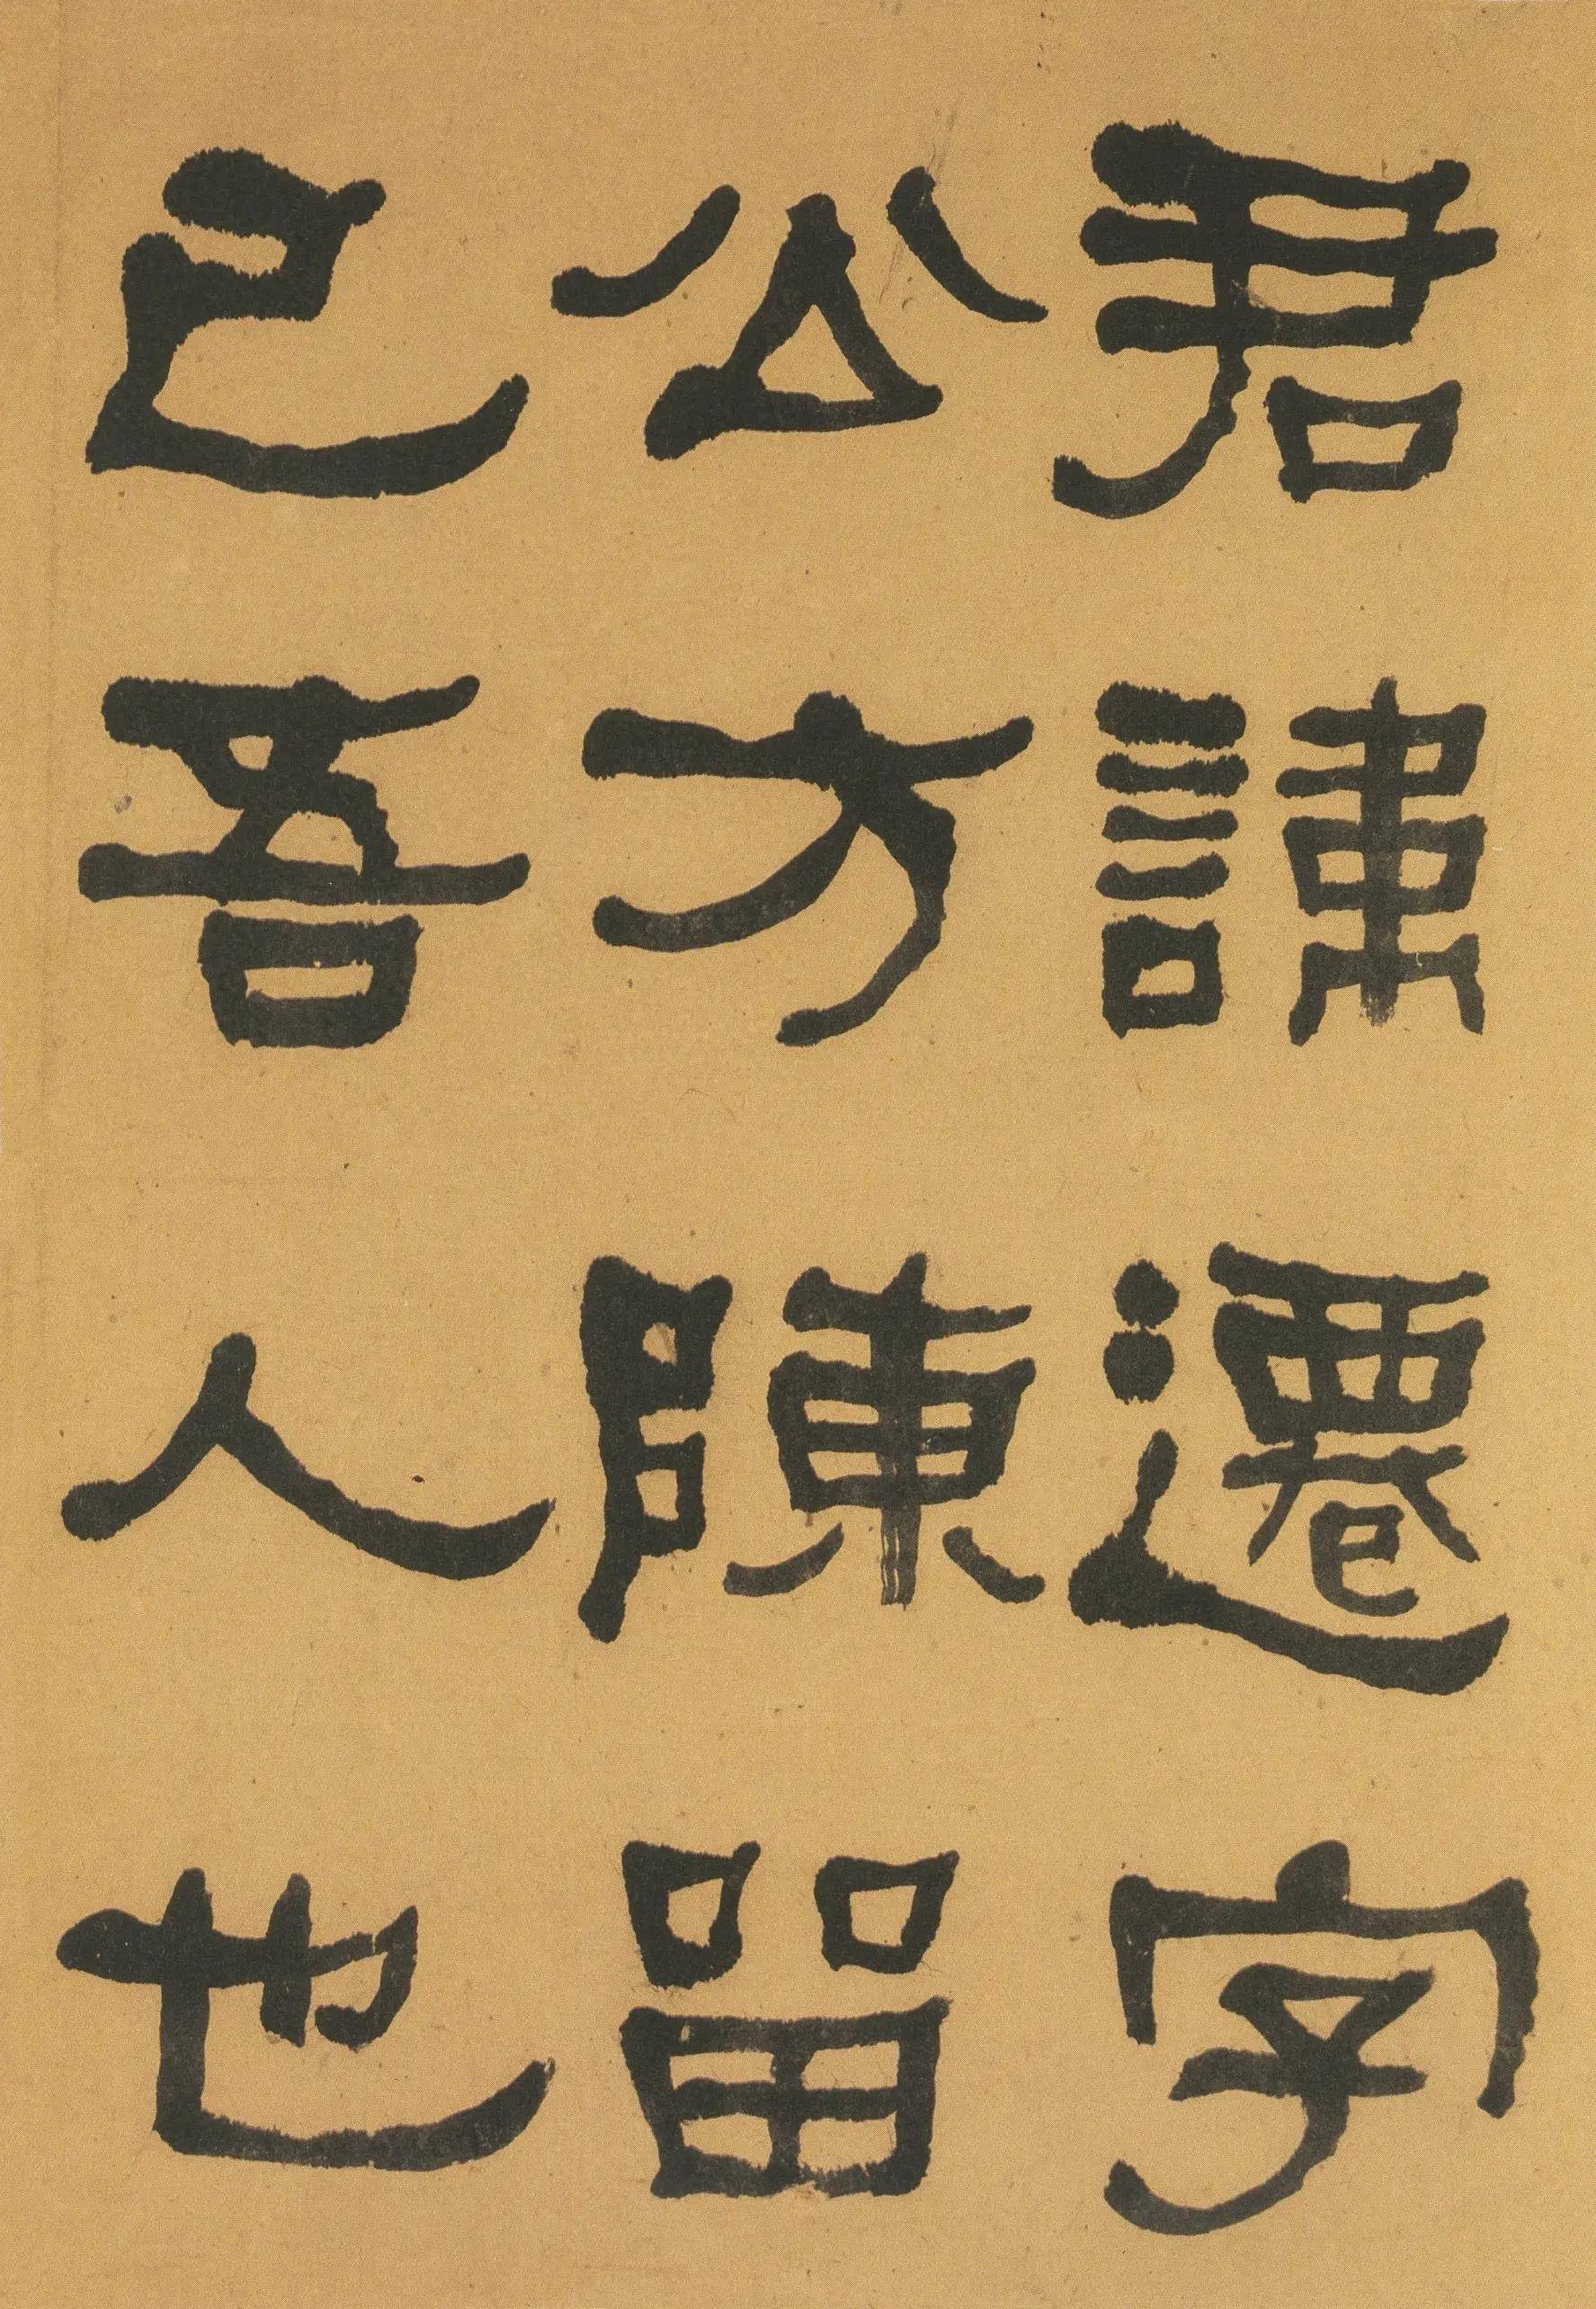 君諱遷字
公方陳留
己吾人也